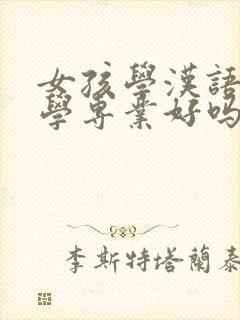 女孩學漢語
學專業好吗
李斯特塔蘭泰